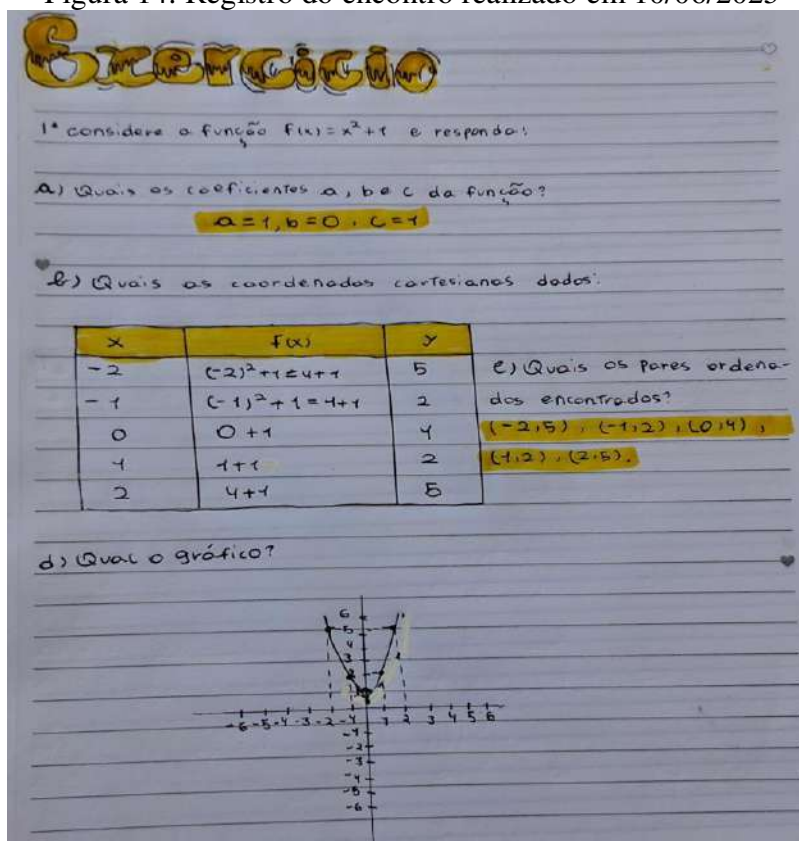 Figura 14: Registro do encontro realizado em
Exercício
1ª considere a função f(x) = x² + 1 e responda:
a) Quais os coeficientes a, b e c da função?
a = 1, b = 0, c = 1
b) Quais as coordenadas cartesianas dadas:
x f(x) y
-2 (-2)² + 1 = 4 + 1 5
-1 (-1)² + 1 = 1 + 1 2
0 0 + 1 1
1 1 + 1 2
2 4 + 1 5
c) Quais os pares ordena-
dos encontrados?
(-2,5), (-1,2), (0,1),
(1,2), (2,5).
d) Qual o gráfico?
6
5
4
3
2
1
-6 -5 -4 -3 -2 -1 1 2 3 4 5 6
-1
-2
-3
-4
-5
-6